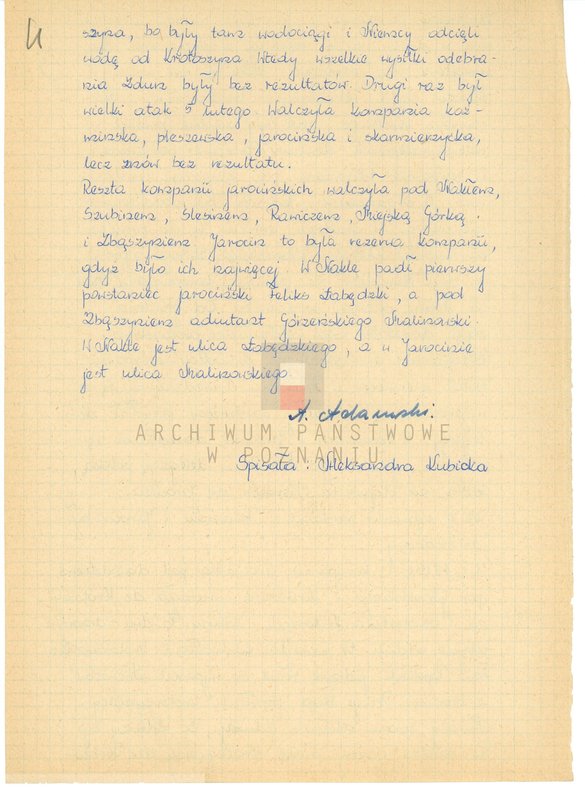 4
szyna, bo były tam wodociągi i Niemcy odcięli
wodę od Krotoszyna Wtedy wszelkie wysiłki odebra-
nia Zdun były bez rezultatów. Drugi raz był
wielki atak 5 lutego. Walczyła kompania koź-
mińska, pleszewska, jarocińska i skarmierzycka,
lecz znów bez rezultatu.
Reszta kompanii jarocińskich walczyła pod Nakłem,
Szubinem, Ślesinem, Rawiczem, Miejską Górką.
i Zbąszyniem. Jarocin to była rezerwa kompanii,
gdyż było ich najwięcej. W Nakle padł pierwszy
powstaniec jarociński Feliks Łabędzki, a pod
Zbąszyniem adiutant Górzeńskiego Malinowski
W Nakle jest ulica Łabędzkiego, a w Jarocinie
jest ulica Malinowskiego.
A. Adamski.
ARCHIWUM PAŃSTWOWE
W POZNANIU
Spisała: Aleksandra Kubicka